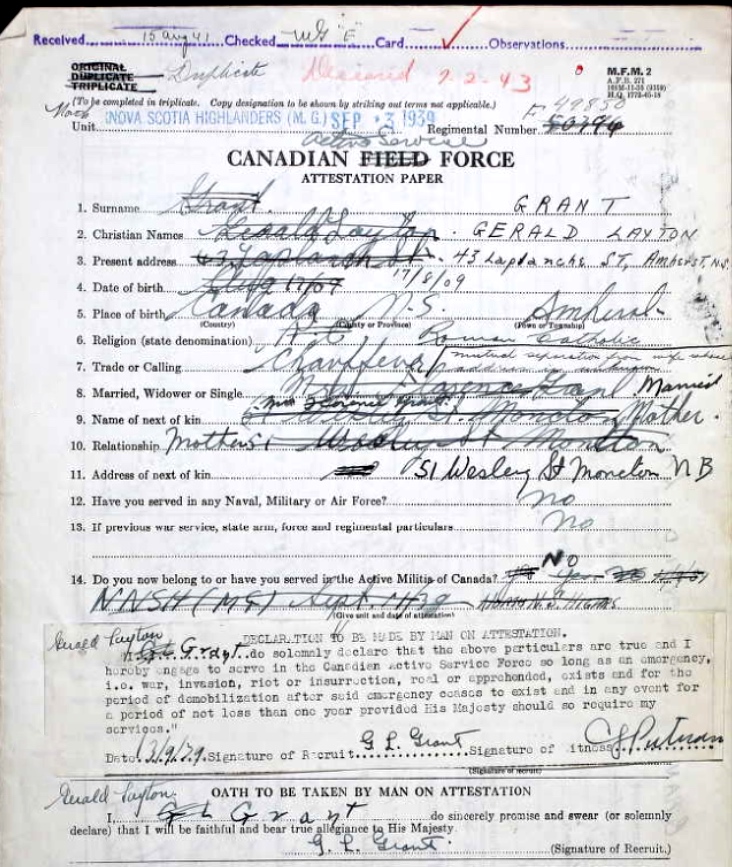 Received 15 Aug 41 Checked Card Observations
ORIGINAL
DUPLICATE Duplicate Deceased 7-2-43 M.F.M. 2
TRIPLICATE
(To be completed in triplicate. Copy designation to be shown by striking out terms not applicable.) F 49850
Unit NOVA SCOTIA HIGHLANDERS (M.G.) SEP 3 1939 Regimental Number
Active Service
CANADIAN FIELD FORCE
ATTESTATION PAPER
1. Surname Grant GRANT
2. Christian Names Gerald Layton GERALD LAYTON
3. Present address 43 Laplanche St. 43 Laplanche ST, Amherst, N.S.
4. Date of birth Aug 17/09 17/8/09
5. Place of birth Canada N.S. Amherst
(Country) (County or Province) (Town or Township)
6. Religion (state denomination) R.C. Roman Catholic
7. Trade or Calling Chauffeur mutual separation from wife whose
address is unknown
8. Married, Widower or Single Married
9. Name of next of kin Mother
10. Relationship Mother 51 Wesley St Moncton
11. Address of next of kin 51 Wesley St Moncton NB
12. Have you served in any Naval, Military or Air Force? No
13. If previous war service, state arm, force and regimental particulars No
14. Do you now belong to or have you served in the Active Militia of Canada? NO
NNSH (MG) Sept. 1/39
(Give unit and date of attestation)
DECLARATION TO BE MADE BY MAN ON ATTESTATION.
Gerald Layton
Grant do solemnly declare that the above particulars are true and I
hereby engage to serve in the Canadian Active Service Force so long as an emergency,
i.e. war, invasion, riot or insurrection, real or apprehended, exists and for the
period of demobilization after said emergency ceases to exist and in any event for
a period of not less than one year provided His Majesty should so require my
services."
Date 3/9/39 Signature of Recruit G L Grant Signature of itness
(Signature of recruit)
OATH TO BE TAKEN BY MAN ON ATTESTATION
Gerald Layton
I, G L Grant do sincerely promise and swear (or solemnly
declare) that I will be faithful and bear true allegiance to His Majesty.
G. L. Grant (Signature of Recruit.)